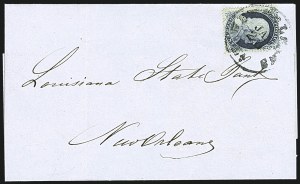 Louisiana State Bank
New Orleans